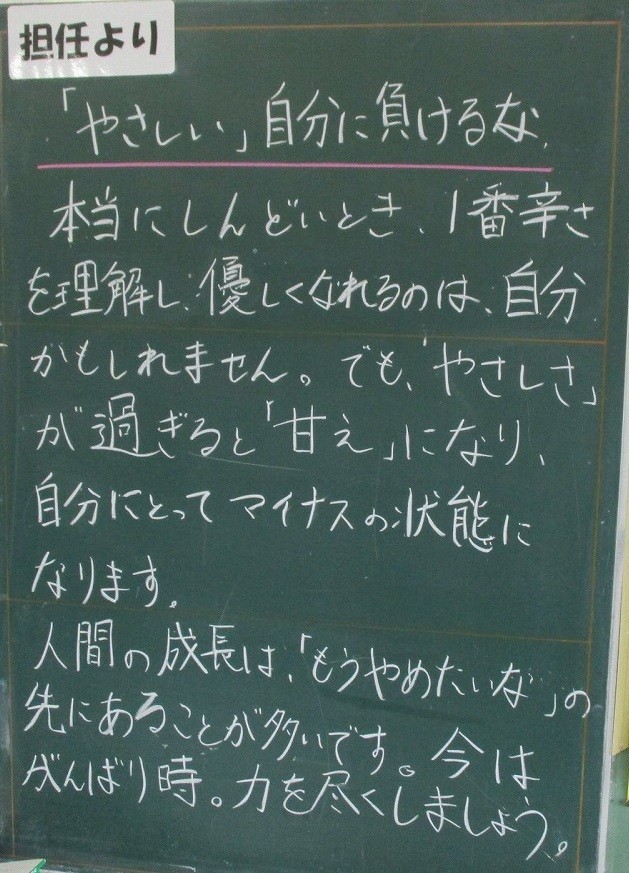 担任より
「やさしい」自分に負けるな
本当にしんどいとき、1番辛さ
を理解し、優しくなれるのは、自分
かもしれません。でも、「やさしさ」
が過ぎると「甘え」になり、
自分にとってマイナスの状態に
なります。
人間の成長は、「もうやめたいな」の
先にあることが多いです。今は
がんばり時。力を尽くしましょう。